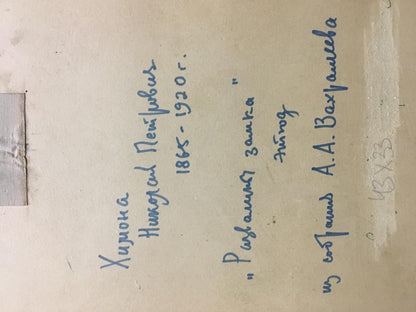 Химона
Николай Петрович
1865-1920 г.
"Развалины замка"
этюд
из собрания А.А. Вахрамеева
43х33